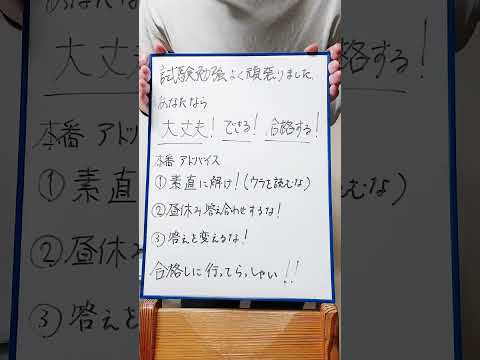 試験勉強よく頑張りました。
あなたなら
大丈夫! できる! 合格する!
本番 アドバイス
① 素直に解け!(ウラを読むな)
② 昼休み答え合わせするな!
③ 答えを変えるな!
合格しに行ってらっしゃい!!